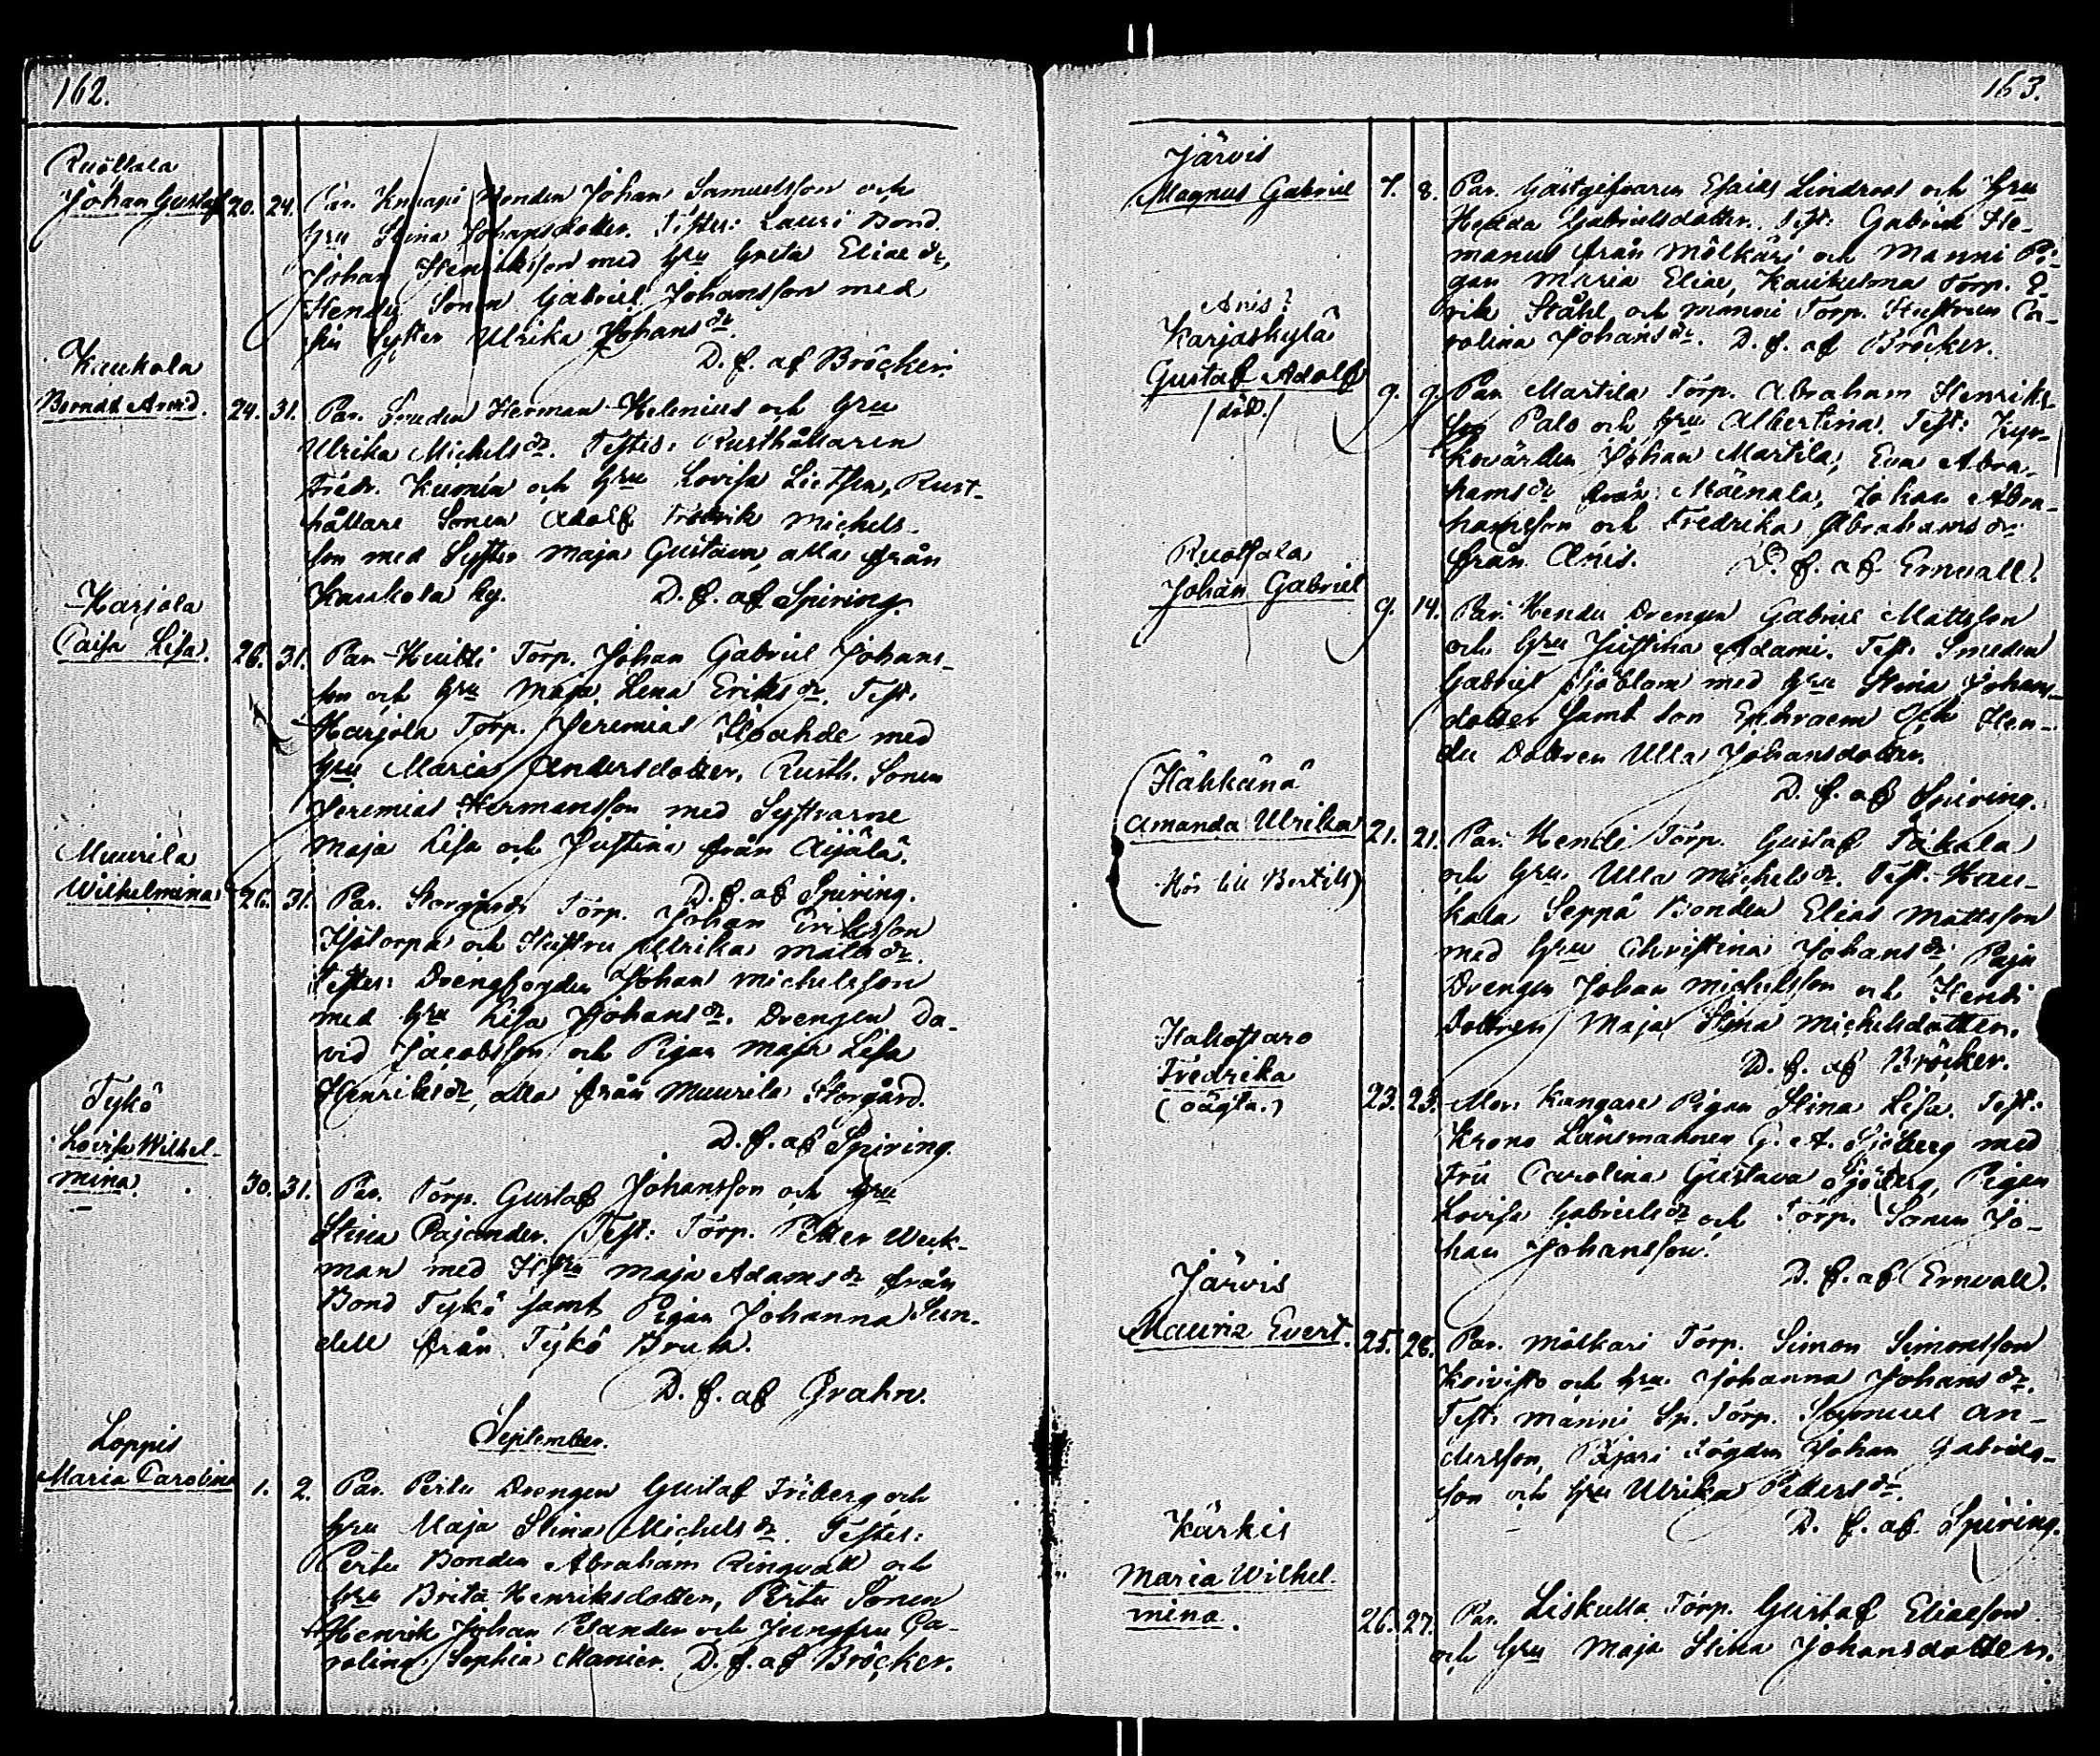 162.
Ruotsala
Johan Gustaf 20. 24. Par. Knaapi Bonden Johan Samuelsson och
hru Stina Johansdotter. Testes: Lauri Bond.
Johan Henriksson med hru Greta Eliae dr,
Hendu Sonen Gabriel Johansson med
sin Syster Ulrika Johans dr.
D. f. af Bröcker.
Kaukola
Berndt Arvid. 24. 31. Par. Smeden Herman Helenius och hru
Ulrika Michels dr. Testes: Rusthållaren
Fredr. Kumén och hru Lovisa Lietzen, Rust-
hållare Sonen Adolf Fredrik Michels-
son med Syster Maja Gustava, alla från
Kaukola by. D. f. af Spiring.
Karjola
Caisa Lisa. 26. 31. Par. Kuitti Torp. Johan Gabriel Johans-
son och hru Maja Lena Eriks dr. Test.
Karjola Torp. Jeremias med
hru Maria Andersdotter, Rusth. Sonen
Jeremias Hermansson med Systrarne
Maja Lisa och Justina från Äijälä.
D. f. af Spiring.
Muurila
Wilhelmina 26. 31. Par. Storgårds Torp. Johan Eriksson
Isotorpa och Hustru Ulrika Matts dr.
Testes: Drengfogden Johan Michelsson
med hru Lisa Johans dr. Drengen Da-
vid Jacobsson och Pigan Maja Lisa
Henriks dr, alla från Muurila Storgård.
D. f. af Spiring.
Tykö
Lovisa Wilhel-
mina. 30. 31. Par. Torp. Gustaf Johansson och hru
Stina Pajander. Test: Torp. Petter Weck-
man med Hstru Maja Adams dr från
Bond Tykö samt Pigan Johanna Sun-
dell från Tykö Bruk.
D. f. af Grahn.
September.
Loppis
Maria Carolina 1. 2. Par. Pertu Drengen Gustaf Friberg och
hru Maja Stina Michels dr. Testes:
Pertu Bonden Abraham Ringvall och
hru Brita Henriksdotter, Pertu Sonen
Henrik Johan Pelander och Jungfru Ca-
rolina Sophia Manier. D. f. af Bröcker.
163.
Järvis
Magnus Gabriel 7. 8. Par. Gästgifvaren Esaias Lindroos och hru
Hedda Gabrielsdotter. Test: Gabriel He-
manus från Mölkäri och Manni Pi-
gan Maria Eliae, Kaukelma Torp. E-
rik Ståhl och Manni Torp. Hustrun Ca-
rolina Johans dr. D. f. af Bröcker.
Anis?
Karjaskylä
Gustaf Adolf
/död./ 9. 9. Par. Martila Torp. Abraham Henriks-
son Palo och hru Albertina. Test: Kyr-
kovärden Johan Martila, Eva Abra-
hams dr från Mäenala, Johan Abra-
hamsson och Fredrika Abrahams dr
från Anis. D. f. af Ernvall.
Ruotsala
Johan Gabriel 9. 14. Par. Hendu Drengen Gabriel Mattsson
och hru Justina Adami. Test: Smeden
Gabriel Sjöblom med hru Stina Johans-
dotter samt son Ephraem och Hen-
du Dottren Ulla Johansdotter.
D. f. af Spiring.
(Hähkänä
Amanda Ulrika 21. 21. Par. Hendi Torp. Gustaf Takala
Hör till Bertils) och hru Ulla Michels dr. Test. Kau-
kola Seppä Bonden Elias Mattsson
med hru Christina Johans dr, Paju
Drengen Johan Michelsson och Hendi
Dottren Maja Stina Michelsdotter.
D. f. af Bröcker.
Hakostaro
Fredrika
(oägta.) 23. 23. Mor: Kangare Pigan Stina Lisa. Test:
Krono Länsmannen G. A. Sjöberg med
Fru Carolina Gustava Sjöberg, Pigan
Lovisa Gabriels dr och Torp. Sonen Jo-
han Johansson.
D. f. af Ernvall.
Järvis
Mauriz Evert. 25. 28. Par. Mölkäri Torp. Simon Simonsson
Koivisto och hru Johanna Johans dr.
Test: Männi Sp. Torp. Samuel An-
dersson, Pajari Fogden Johan Gabriels-
son och hru Ulrika Petters dr.
D. f. af Spiring.
Kärkis
Maria Wilhel-
mina. 26. 27. Par. Liskulla Torp. Gustaf Eliaeson
och hru Maja Stina Johansdotter.